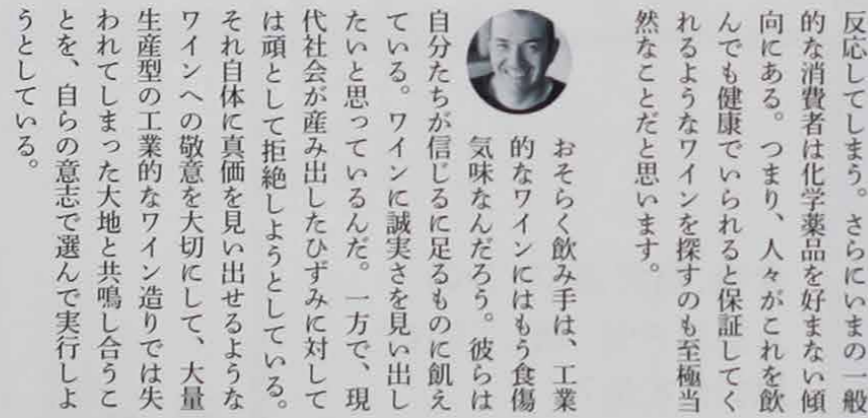 反応してしまう。さらにいまの一般
的な消費者は化学薬品を好まない傾
向にある。つまり、人々がこれを飲
んでも健康でいられると保証してく
れるようなワインを探すのも至極当
然なことだと思います。
おそらく飲み手は、工業
的なワインにはもう食傷
気味なんだろう。彼らは
自分たちが信じるに足るものに飢え
ている。ワインに誠実さを見い出し
たいと思っているんだ。一方で、現
代社会が産み出したひずみに対して
は頑として拒絶しようとしている。
それ自体に真価を見い出せるような
ワインへの敬意を大切にして、大量
生産型の工業的なワイン造りでは失
われてしまった大地と共鳴し合うこ
とを、自らの意志で選んで実行しよ
うとしている。